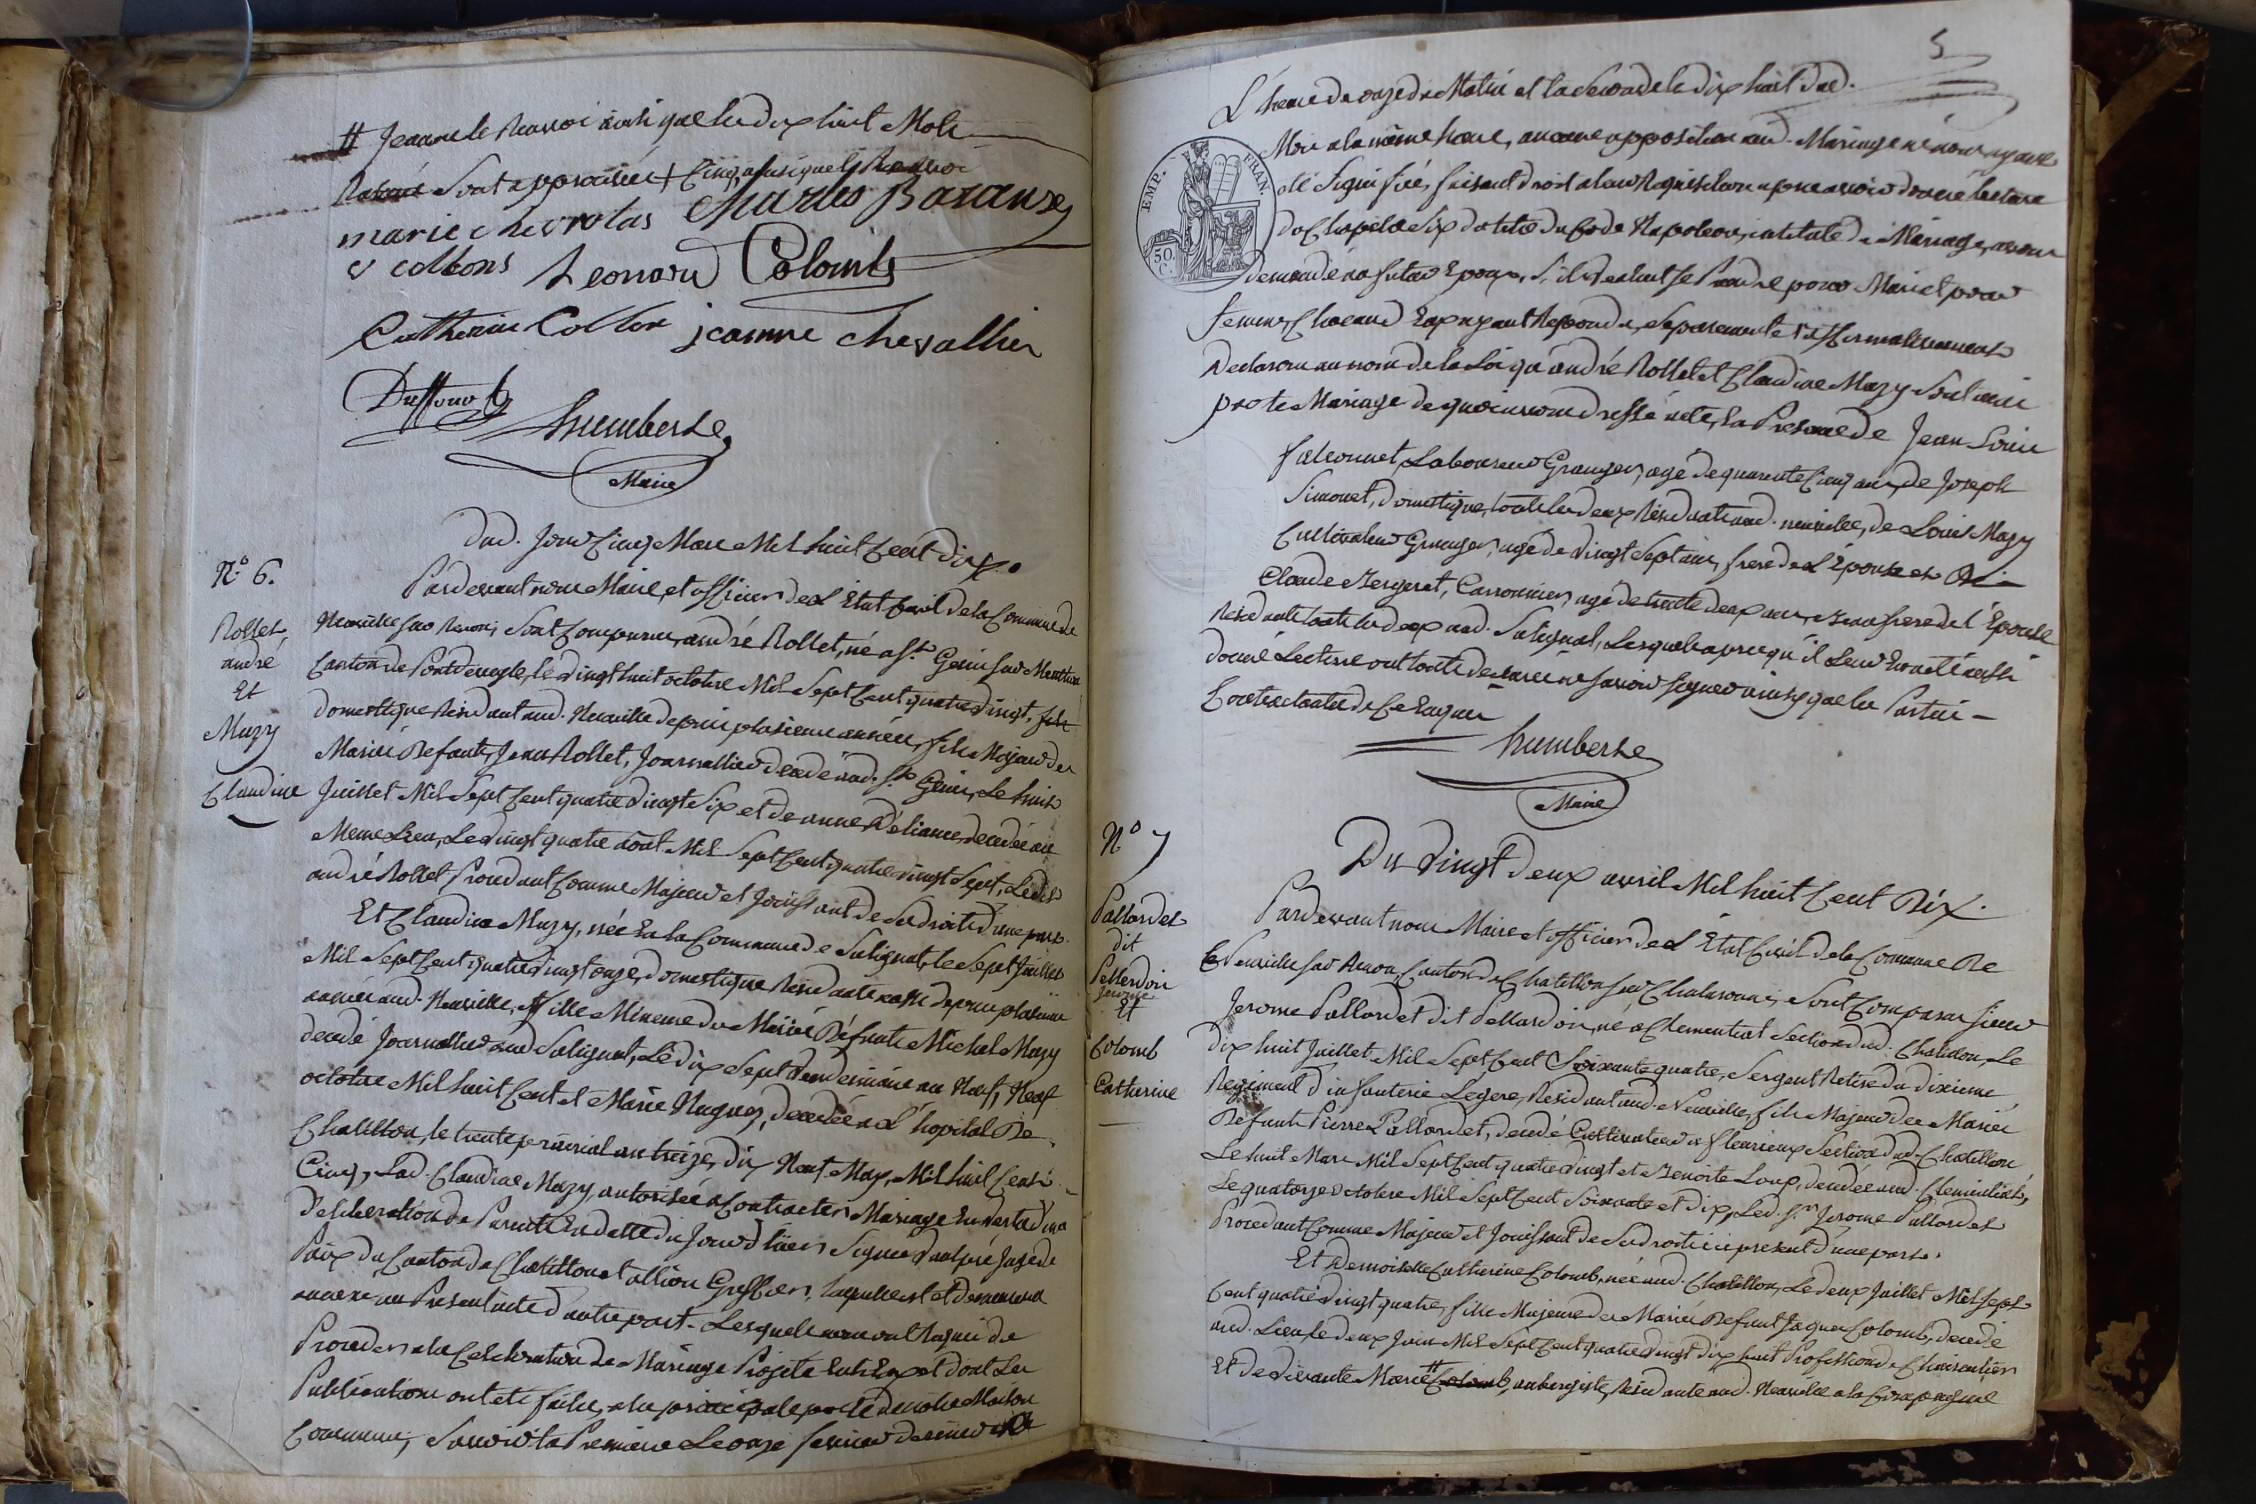 # Jeanne le Renvoi ainsi que les dix huit Mots
Rayés Sont approuvés + Cinq
marie chevrolas Charles Baranze
v collons Leonard Colomb
Catherine Collon jeanne chevallier
Duffour
humberte
Maire
Dud. Jour Cinq Mars Mil huit Cent dix.
N.º 6.
Rollet
andré
Et
Mazy
Claudine
Pardevant nous Maire et officier de L'Etat Civil de la Commune de
Neuville sur Renon, Sont Comparus, andré Rollet, né a S.t Genis sur Menthon
Canton de Pontdeveyle, le vingt huit octobre Mil Sept Cent quatre vingt,
Domestique Residant aud. Neuville depuis plusieurs années, fils Majeur des
Mariés Defunts, Jean Rollet, Journallier decedé aud. S.t Genis, Le huit
Juillet Mil Sept Cent quatre vingt Six et de anne Deliance, decedée au
Meme Lieu, Le vingt quatre aout Mil Sept Cent quatre vingt Sept, Ledit
andré Rollet Procedant Comme Majeur et Jouissant de Ses droits d'une part.
Et Claudine Mazy, née En la Commune de Sulignat, le Sept Juillet
Mil Sept Cent quatre vingt onze, domestique Residante aussi depuis plusieurs
années aud. Neuville, fille Mineure des Mariés Défunts Michel Mazy
decedé Journallier aud Sulignat, Le dix Sept Vendemiaire an Neuf, Neuf
octobre Mil huit Cent et Marie Nugues, decedée a L'hopital De
Chatillon, le trente prairial an treize, dix Neuf May, Mil huit Cent
Cinq, Lad. Claudine Mazy, autorisée a Contracter Mariage En vertu d'une
Deliberation de Parents En datte du Jour d'hier Signée Juge de
Paix du Canton de Chatillon et allion Greffier, laquelle est et demeurera
annexée au Present acte d'autre part. Lesquels nous ont Requis de
Proceder a la Celebration du Mariage Projeté Entr'Eux et dont Les
Publications ont été faites, a la principale porte de notre Maison
Commune, Savoir la Premiere Le onze fevrier dernier a
5
L'heure de onze du Matin et la Seconde le dix huit Dud.
EMP. FRAN.
50 C.
Mois a la même heure, aucune opposition aud. Mariage ne nous ayant
été Signifiée, faisant droit a leur Requisition apres avoir donné lecture
du Chapitre Six du titre du Code Napoleon, intitulé du Mariage, avons
demandé au futur Epoux, S'ils veulent Se Prendre pour Mari et pour
femme, Chacun d'Eux ayant Repondu, Separement et affirmativement
Declarons au nom de la Loi qu'andré Rollet et Claudine Mazy Sont unis
par le Mariage de quoi avons dressé acte, En Presence de Jean Louis
falconnet, Laboureur Granger, agé de quarante Cinq ans, de Joseph
Simonet, domestique, touts les deux Residants aud. neuville, de Louis Mazy
Cultivateur Granger, agé de vingt Sept ans, frere de L'Epouse et De
Claude Bergeret, Carronnier, agé de trente deux ans, Beau frere de l'Epouse
Residants touts les deux aud. Sulignat, Lesquels apres qu'il Leur En a été aussi
donné Lecture ont touts declaré ne Savoir Signer ainsi que les Parties
Contractantes de Ce Enquis
humberte
Maire
N.º 7
Pallordet
dit
Pellerdoin
Jerome
Et
Colomb
Catherine
Du vingt deux avril Mil huit Cent Dix.
Pardevant nous Maire et officier de L'Etat Civil de la Commune De
Neuville sur Renon, Canton de Chatillon sur Chalaronne, Sont Comparus Sieur
Jerome Pallordet dit Pellardoin, né a Clementiat Section dud. Chatillon, Le
Dix huit Juillet Mil Sept Cent Soixante quatre, Sergent Retiré du dixieme
Regiment d'infanterie Legere, Residant aud. Neuville, fils Majeur des Mariés
Defunts Pierre Pallordet, decedé Cultivateur a fleurieux Section dud. Chatillon
Le huit Mars Mil Sept Cent quatre vingt et Benoite Loup, decedée aud. Clementiat,
Le quatorze octobre Mil Sept Cent Soixante et dix, Led. S.r Jerome Pallordet
Procedant Comme Majeur et Jouissant de Ses droits ici present d'une part.
Et Demoiselle Catherine Colomb, née aud. Chatillon, Le deux Juillet Mil Sept
Cent quatre vingt quatre, fille Majeure des Mariés Defunt Jaques Colomb, decedé
aud. Lieu Le deux Juin Mil Sept Cent quatre vingt dix huit Profession de
Et de vivante Marie Colomb, aubergiste, Residante aud. Neuville a la Compagne